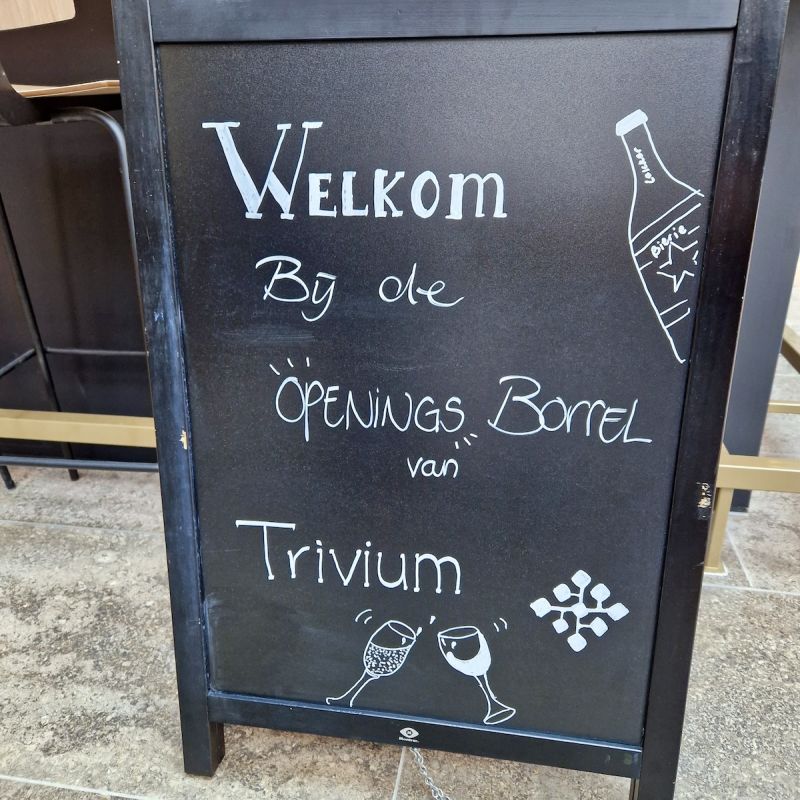 WELKOM
Bij de
OPENINGS BORREL
van
Trivium
Bierie